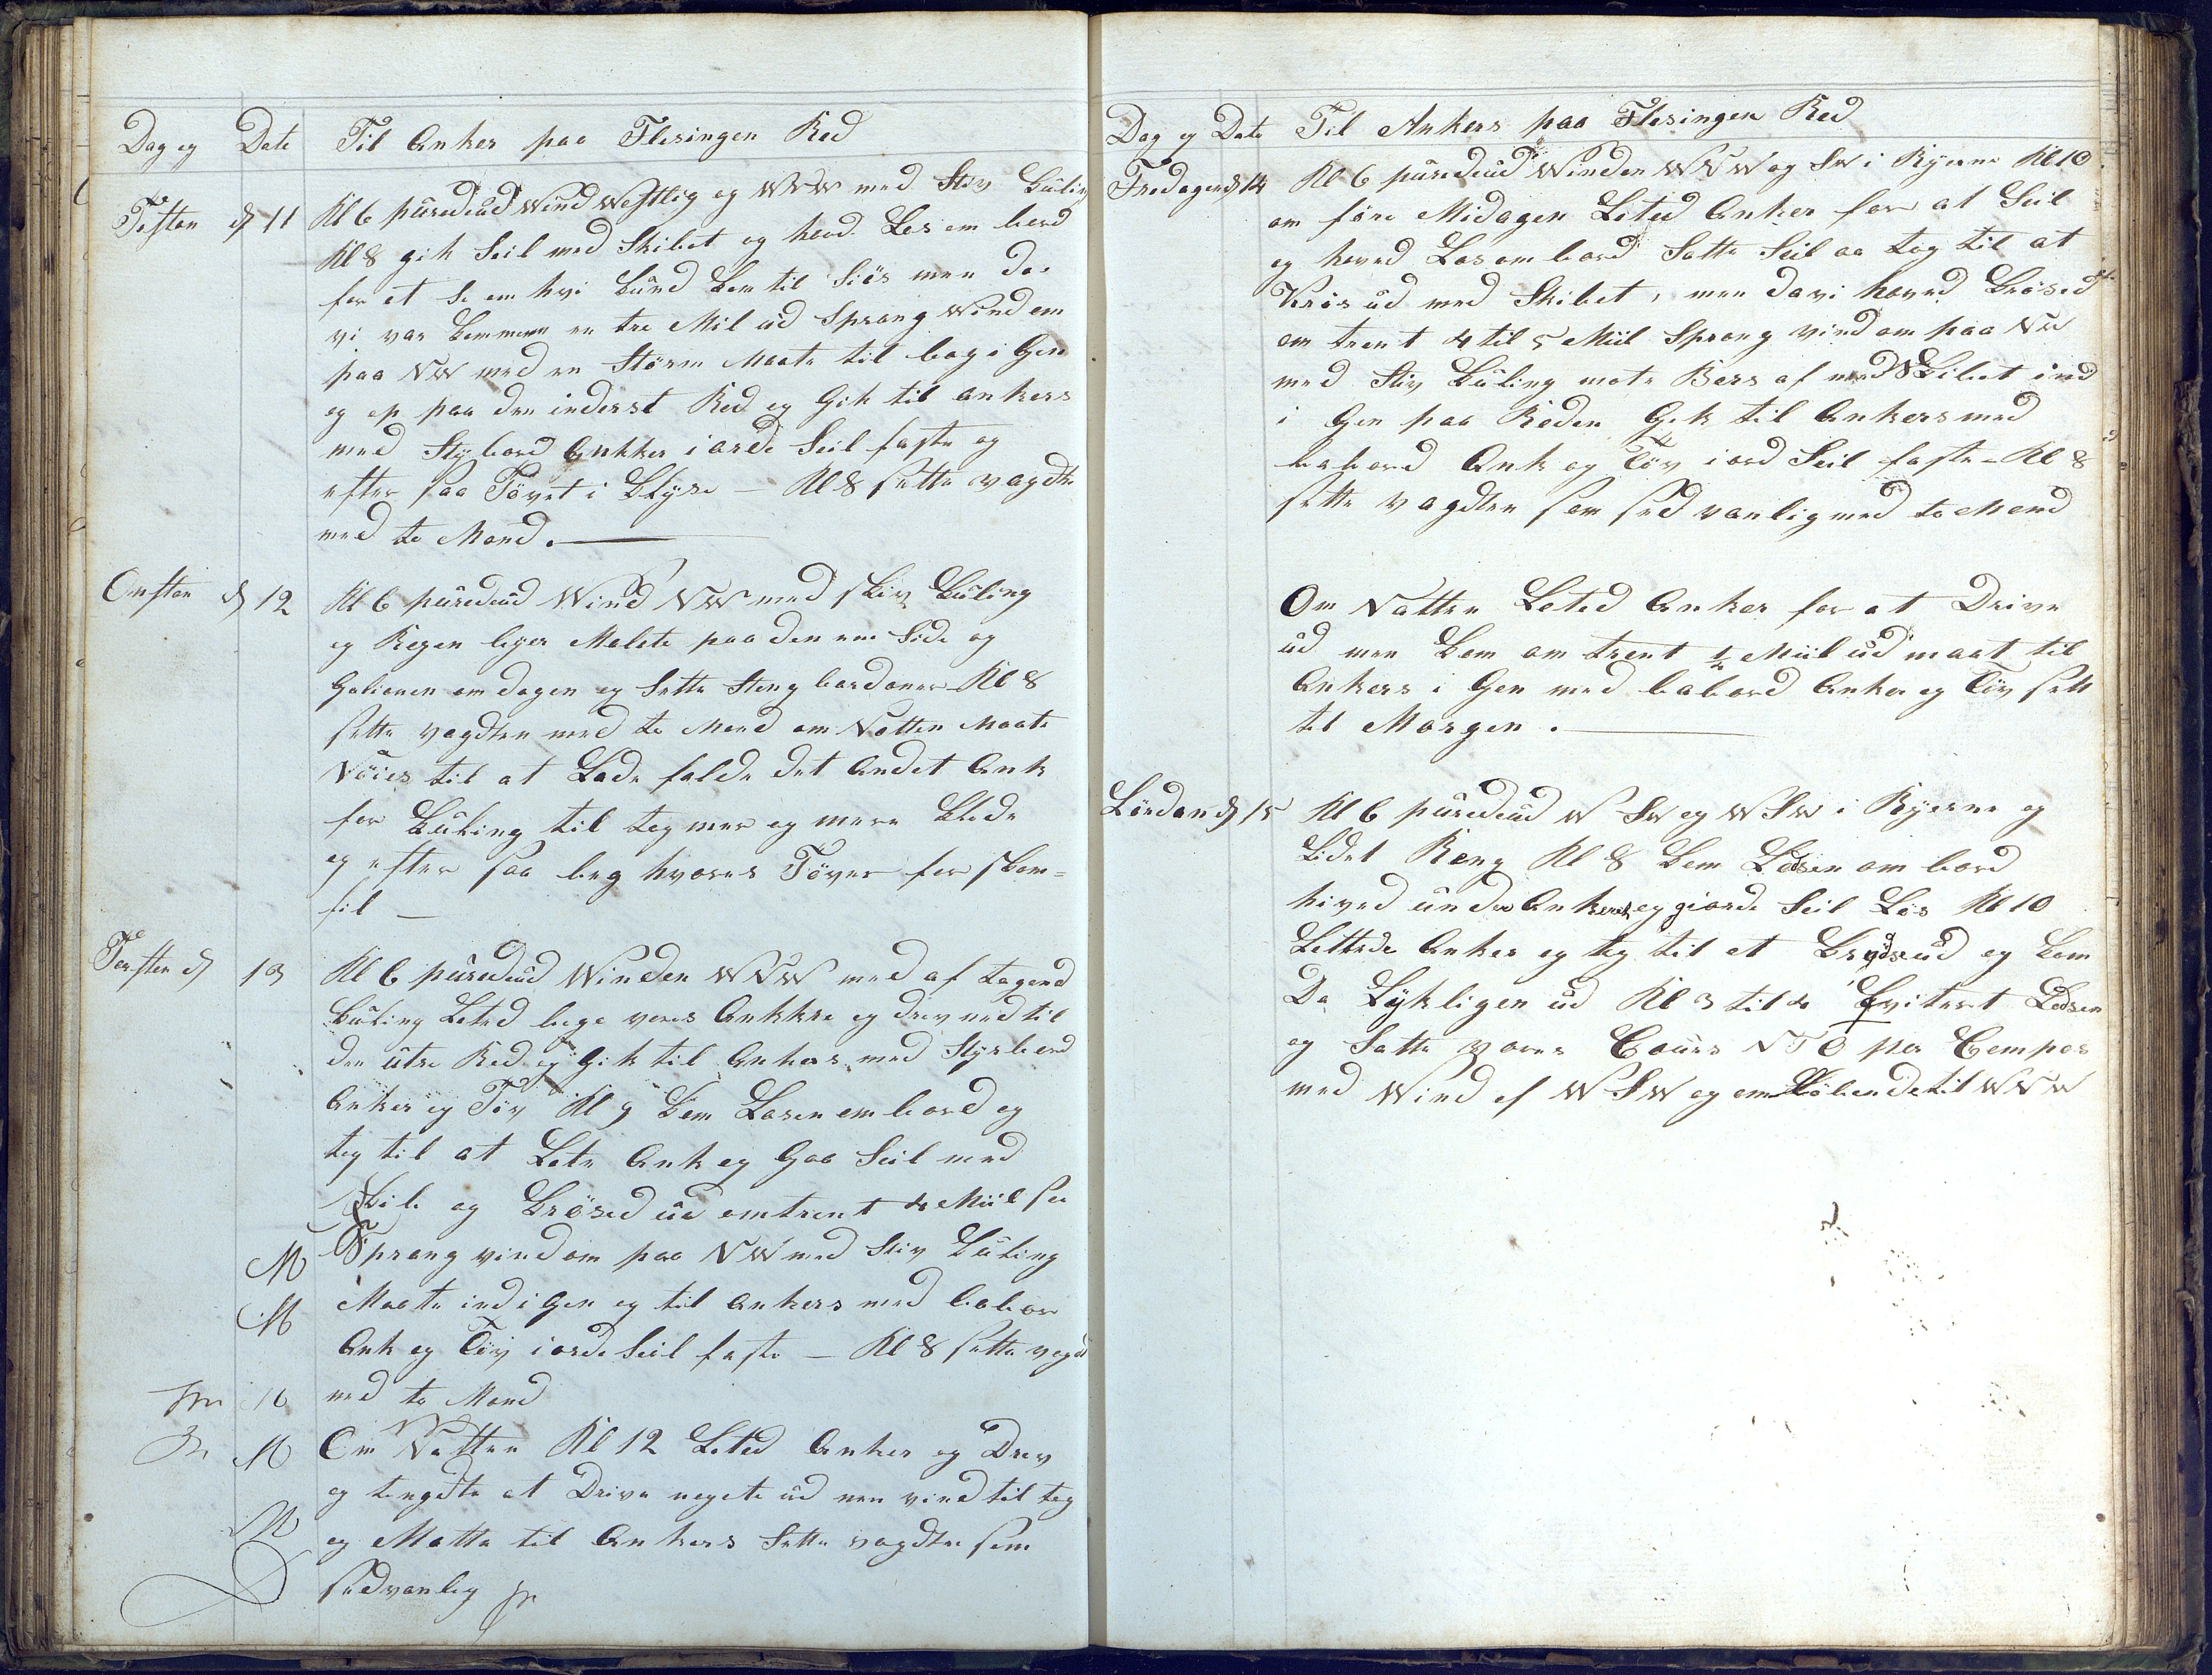 Dag og Date Til Anker paa Flesingen Red
Tistan d 11 Kl 6 pured ud Wind Westlig og WNW med Stiv Kuling
Kl 8 gik Seil med Skibet og havd Los om bord
for at Se om hvi kund kom til Siös men da
vi var kommen en tre Mil ud Sprang Wind om
paa NW med en Störm Maate til bag i Gen
og op paa den inderst Red og Gik til ankers
med Stybord Ankker iorde Seil faste og
efter saa Tövet i Klyse — Kl 8 sette vagdte
med to Mand.
Onstan d 12 Kl 6 pured ud Wind NW med stiv Kuling
og Regen liger Malete paa den ene Side og
Galionen om dagen og Sette Steng bardoner Kl 8
sette vagdten med to Mand om Natten Maate
Nöies til at Lade falde det Andet Ank
for Kuling til tog mer og mere Klode
og efter saa beg hvores Töver for skam=
fil —
Torsten d 13 Kl 6 pured ud Winden WNW med af tagend
Kuling Leted bege vores Ankkre og drev ned til
den utre Red og Gik til Ankers med Styrbord
Anker og Töv Kl 9 kom Losen om bord og
tog til at Lete Ank og Gaa Seil med
Skibe og krösed ud omtrent 4 Miil saa
M Sprang vind om paa NW med Stiv Kuling
M Maate ind i Gen og til ankers med babor
Ank og Töv iorde Seil faste — Kl 8 sette vagd
M med to Mand
M Om Natten Kl 12 Leted Anker og Drev
og tengdte at Drive nogete ud men vind til tog
og Matte til Ankers Sette vagdten som
sedvanlig
Dag og Date Til Ankers paa Flesingen Red
Fredagen d 14 Kl 6 pured ud Winden WNW og SW i Byerne Kl 10
om före Midagen Leted Anker for at Seil
og haved Los om bord Satte Seil aa tog til at
Krös ud med Skibet, men da vi haved krösed
om trent 4 til 5 Miil Sprang vind om paa NW
med Stiv Kuling mate Bers af med Skibet ind
i Gen paa Reden Gik til Ankers med
babord Ank og Töv iord Seil faste – Kl 8
sette vagdten som sedvanlig med to Mand
Om Natten Leted Anker for at Drive
ud men kom om trent 1/2 Miil ud maat til
Ankers i Gen med babord Anker og Töv sette
til Morgen.
Lördan d 15 Kl 6 pured ud W SW og WSW i Byerne og
Lidet Reng Kl 8 kom Lodsen om bord
hived under Ankeret og giorde Seil Lös Kl 10
Lettede Anker og tog til at krydse ud og kom
Da Lykligen ud Kl 3 til 4 Qviteret Lodsen
og Satte vores Cours NTO per Compas
med Wind af WSW og om Löbende til WNW